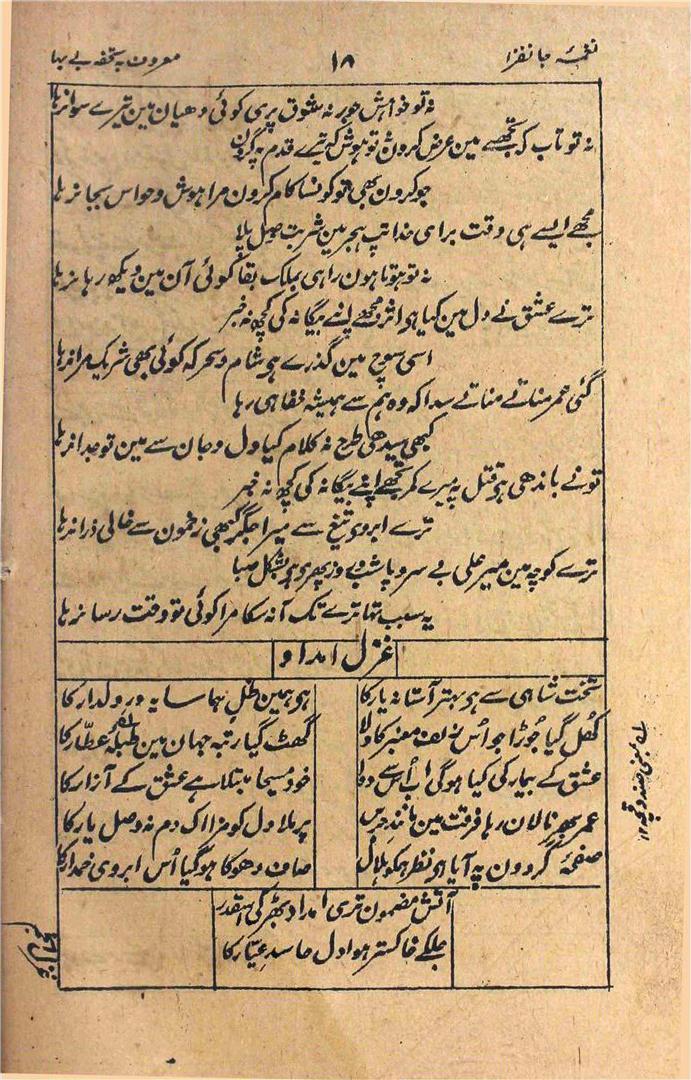 نغمۂ جانفزا
۱۸
معروف بہ تحفہ بے بہا
نہ تو خواہش حور نہ شوق پری کوئی دھیان مین تیرے سوا نرہا
نہ تو تاب کہ تجھسے مین عرض کرون نہ تو ہوش کہ تیرے قدم پہ گرون
جو کرون بھی تو کونسا کام کرون مرا ہوش و حواس بجا نرہا
مجھے ایسے ہی وقت برای خدا تپ ہجر مین شربت وصل پلا
نہ تو ہوتا ہون راہی بملک بقا کوئی آن مین دیکھ رہا نرہا
ترے عشق نے دل مین کیا ہو اثر مجھے اپنے بیگانہ کی کچھ نہ خبر
اسی سوچ مین گذرے ہو شام و سحر کہ کوئی بھی شریک مرا نرہا
گئی عمر مناتے مناتے سدا کہ وہ ہم سے ہمیشہ خفا ہی رہا
کبھی سیدھی طرح نہ کلام کیا دل و جان سے مین تو جدا نرہا
تونے باندھی ہو قتل پہ میرے کمر تجھے اپنے بیگانہ کی کچھ نہ خبر
ترے ابروی تیغ سے میرا جگر کبھی زخمون سے خالی ذرا نرہا
ترے کوچہ مین میر علی بے سر و پا شب و روز پھری ہو بشکل صبا
یہ سبب تھا ترے تک آ نہ سکا مرا کوئی تو وقت رسا نرہا
غزل امداد
تخت شاہی سے ہو بہتر آستانہ یار کا
ہو ہمین ظل ہما سایہ در و لدار کا
کھل گیا جوڑا جو اُس زلف معنبر کا دلا
گھٹ گیا رتبہ جہان مین طبلۂ عطّار کا
عشق کے بیمار کی کیا ہوگی اب اُس سے دوا
خود مسیحا مبتلا ہے عشق کے آزار کا
عمر بھر نالان رہا فرقت مین مانند جرس
پر ملا دل کو مزا اک دم نہ وصل یار کا
صفحۂ گردون پہ آیا ہو نظر ہمکو ہلال
صاف دھوکا ہوگیا اُس ابروی خمدار کا
آتش مضمون تری امداد بھڑکی اسقدر
جلکے خاکستر ہوا دل حاسد عیّار کا